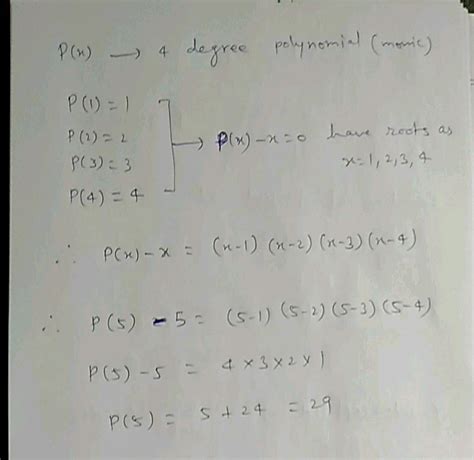 P(x) → 4 degree polynomial (monic)
P(1) = 1
P(2) = 2
P(3) = 3
P(4) = 4
→ P(x) - x = 0 have roots as
x = 1, 2, 3, 4
∴ P(x) - x = (x-1) (x-2) (x-3) (x-4)
∴ P(5) - 5 = (5-1) (5-2) (5-3) (5-4)
P(5) - 5 = 4 × 3 × 2 × 1
P(5) = 5 + 24 = 29